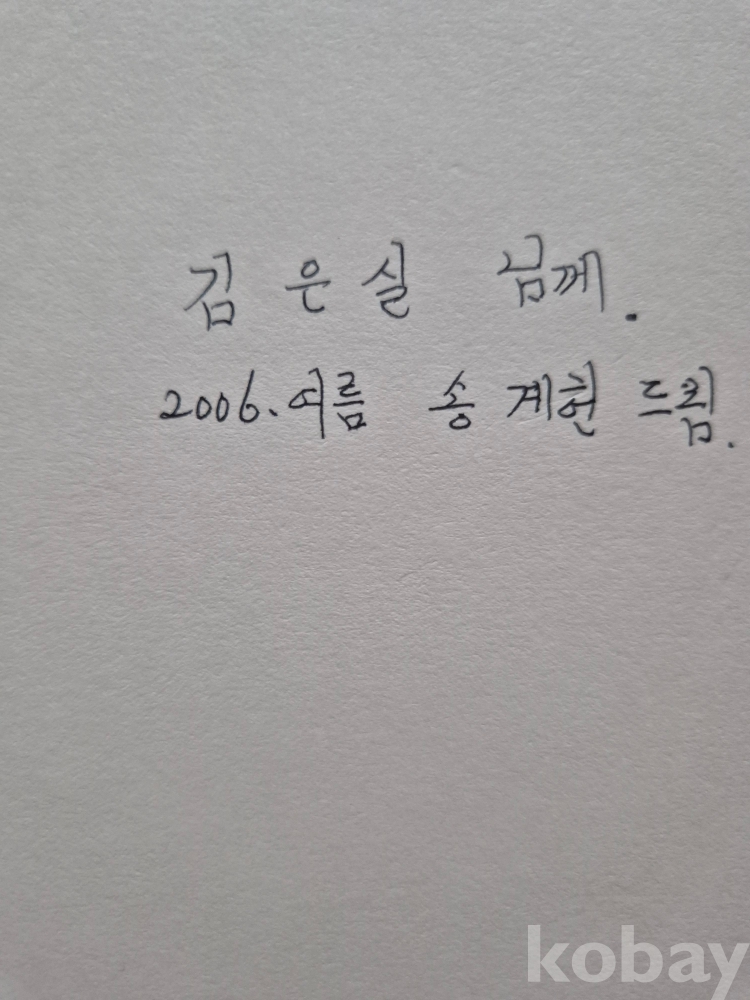 김 은 실 님께.
2006. 여름 송 계헌 드림.
kobay